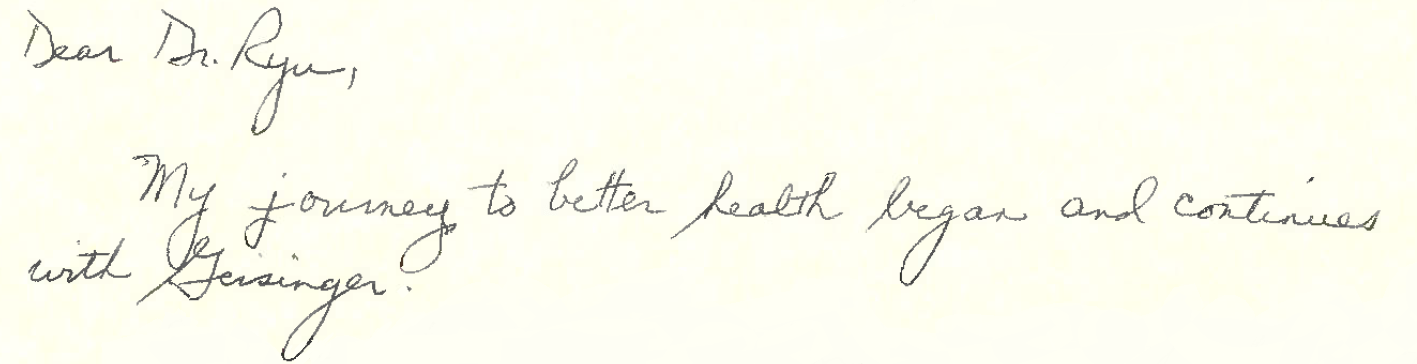 Dear Dr. Ryu,
My journey to better health began and continues
with Geisinger.